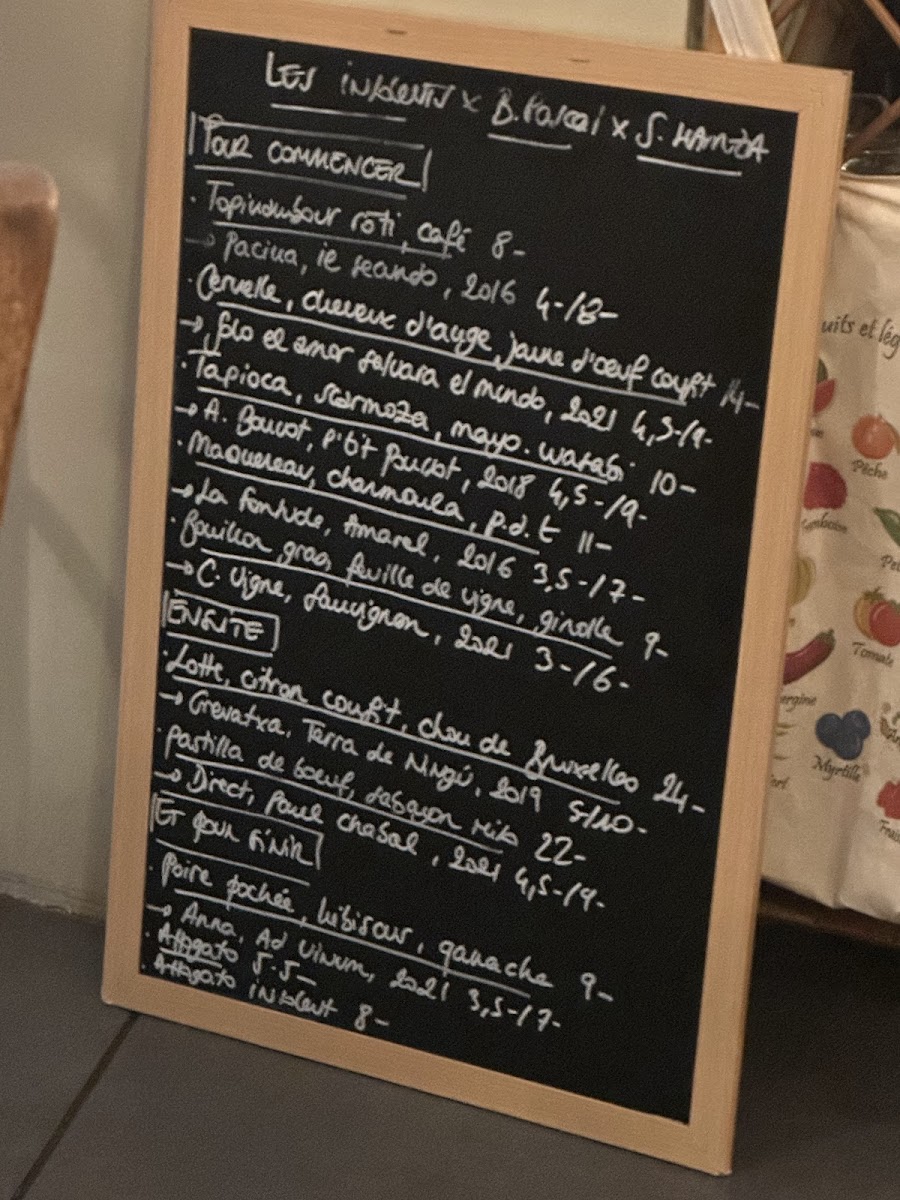 LES INSOLENTS x B. Pascal x S. HAMZA
POUR COMMENCER
· Topinambour rôti, café 8-
→ Pacina, ie 2016 4-/8-
· Cervelle, cheveux d'ange, jaune d'œuf confit 14-
→ Solo el amor salvara el mundo, 2021 4,5-/9-
· Tapioca, scarmoza, mayo. wasabi 10-
→ A. Boucot, P'tit Boucot, 2018 4,5-/9-
· Maquereau, charmoula, p.d.t 11-
→ La Fontude, Amarel, 2016 3,5-/7-
· Bouillon gras, feuille de vigne, girolle 9-
→ C. Vigne, Sauvignon, 2021 3-/6-
ENSUITE
· Lotte, citron confit, chou de Bruxelles 24-
→ Grevatxa, Terra de Ningú, 2019 5/10-
· Pastilla de bœuf, sabayon miso 22-
→ Direct, Paul 2021 4,5-/9-
ET POUR FINIR
· Poire pochée, hibiscus, ganache 9-
→ Anna, Ad Vinum, 2021 3,5-/7-
· Affogato 5.5-
· Affogato INSOLENT 8-
uits et lég
Pêche
Tomate
ergine
Myrtille
Frais